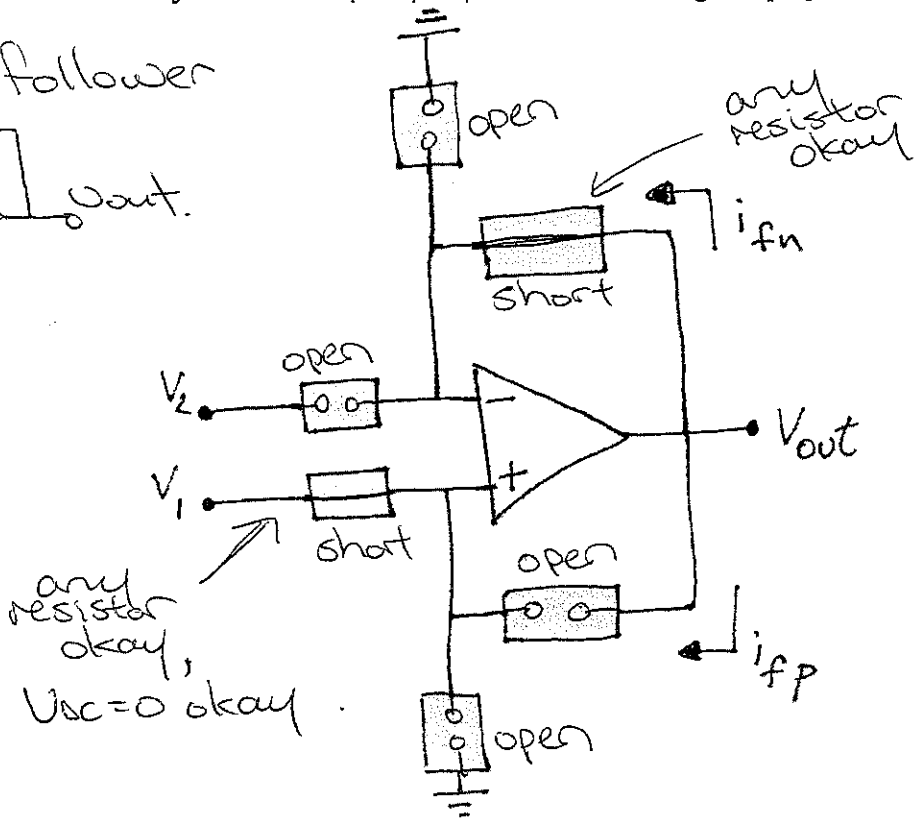 follower
Vout.
open
any
resistor
okay
ifn
short
open
V2
V1
−
+
Vout
short
open
any
resistor
okay,
VDC=0 okay.
ifp
open